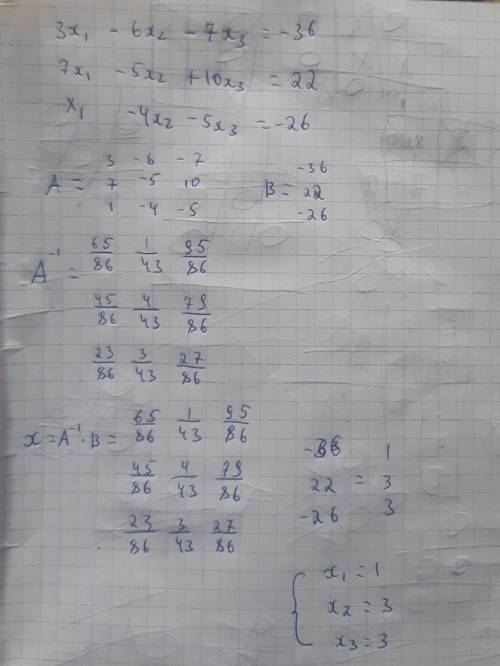 3x₁ - 6x₂ - 7x₃ = -36
7x₁ - 5x₂ + 10x₃ = 22
x₁ - 4x₂ - 5x₃ = -26
3 -6 -7 -36
A = 7 -5 10 B = 22
1 -4 -5 -26
A⁻¹ = 65/86 1/43 95/86
45/86 4/43 79/86
23/86 3/43 27/86
x = A⁻¹ · B = 65/86 1/43 95/86 -36 1
45/86 4/43 79/86 22 = 3
23/86 3/43 27/86 -26 3
x₁ = 1
x₂ = 3
x₃ = 3